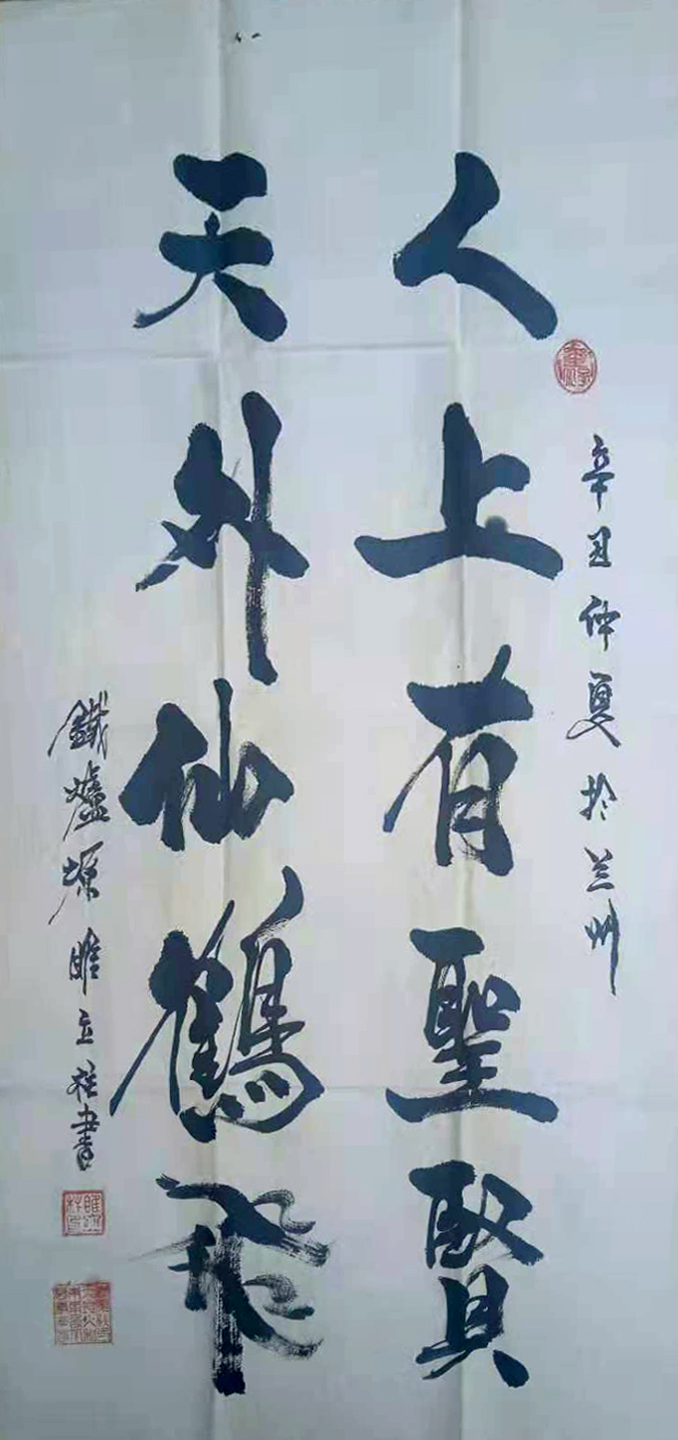 辛丑仲夏於兰州
人上有聖賢
天外仙鶴飛
鐵爐塬睢立柱書